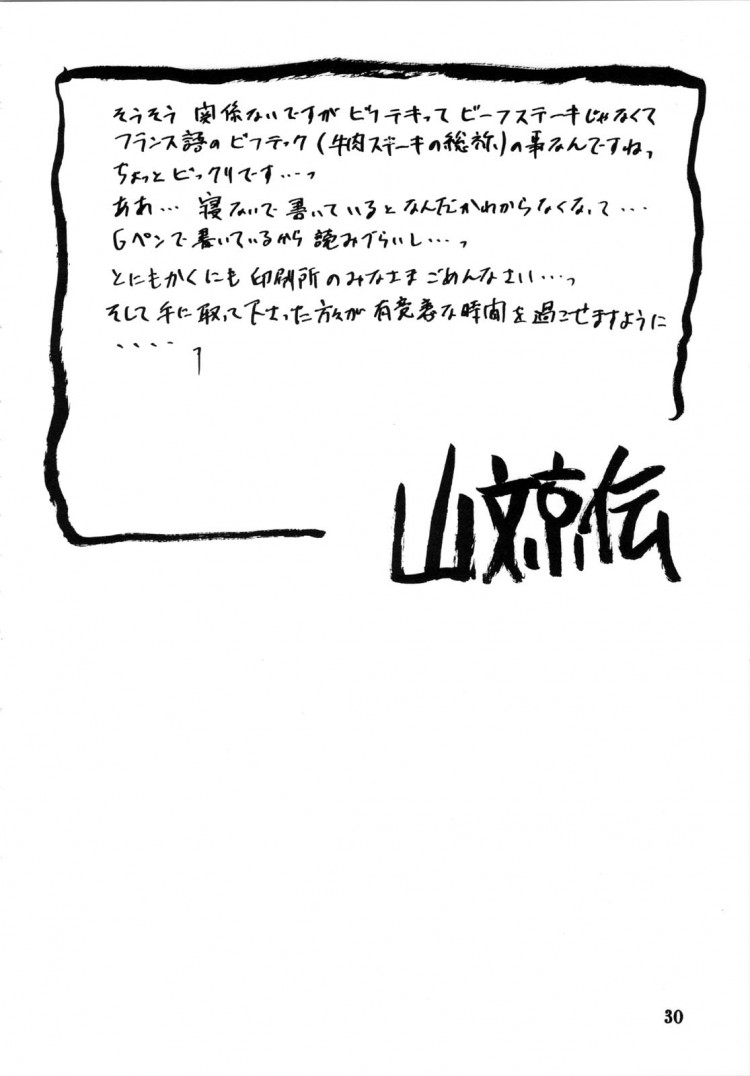 そうそう 関係ないですが ビフテキって ビーフステーキじゃなくて
フランス語の ビフテック (牛肉ステーキの総称)の事なんですねっ
ちょっと ビックリです…っ
ああ… 寝ないで書いていると なんだかわからなくなって…
Gペンで書いているから 読みづらいし…っ
とにもかくにも 印刷所のみなさま ごめんなさい…っ
そして 手に取って下さった方々が 有意義な時間を過ごせますように
‥‥
山文京伝
30